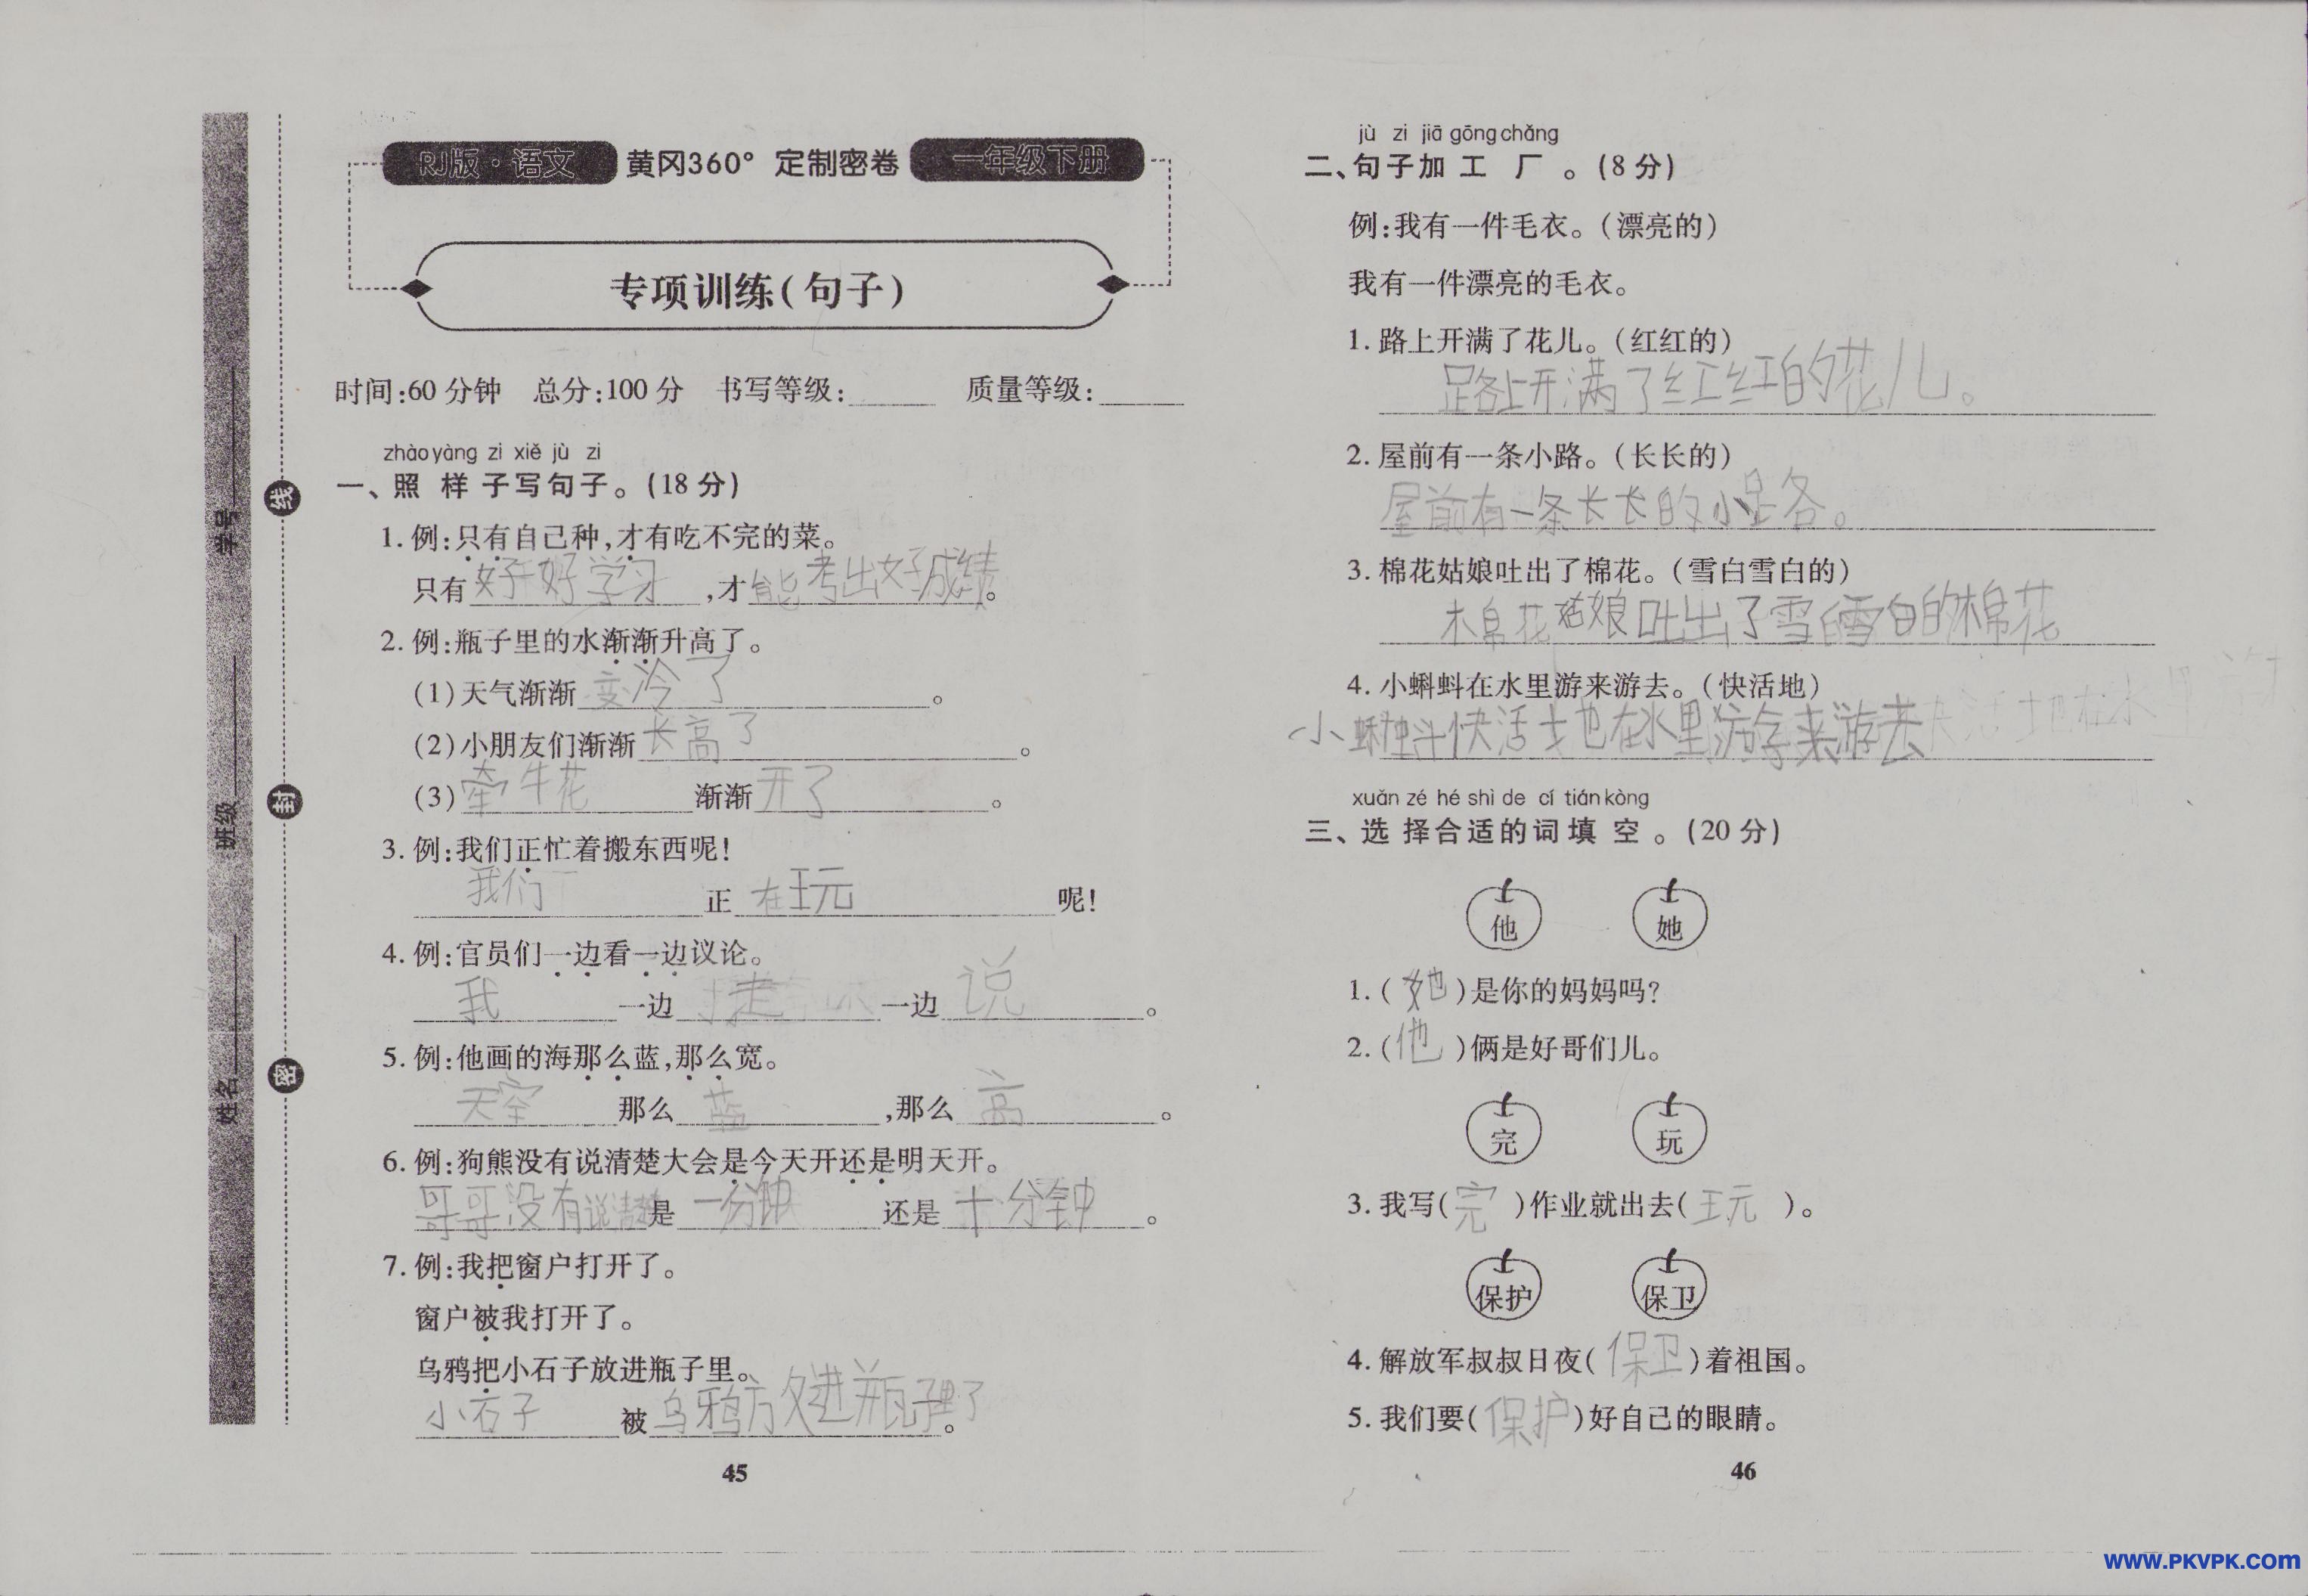 RJ版·语文 黄冈360° 定制密卷 一年级下册
专项训练(句子)
时间:60分钟 总分:100分 书写等级:______ 质量等级:______
zhào yàng zi xiě jù zi
一、照样子写句子。(18分)
1. 例:只有自己种,才有吃不完的菜。
只有好好学习,才能考出好成绩。
2. 例:瓶子里的水渐渐升高了。
(1)天气渐渐变冷了。
(2)小朋友们渐渐长高了。
(3)牵牛花渐渐开了。
3. 例:我们正忙着搬东西呢!
我们正在玩呢!
4. 例:官员们一边看一边议论。
我一边走一边说。
5. 例:他画的海那么蓝,那么宽。
天空那么蓝,那么高。
6. 例:狗熊没有说清楚大会是今天开还是明天开。
哥哥没有说清楚是一分钟还是十分钟。
7. 例:我把窗户打开了。
窗户被我打开了。
乌鸦把小石子放进瓶子里。
小石子被乌鸦放进瓶子里了。
45
学号
班级
姓名
线
封
密
jù zi jiā gōng chǎng
二、句子加工厂。(8分)
例:我有一件毛衣。(漂亮的)
我有一件漂亮的毛衣。
1. 路上开满了花儿。(红红的)
路上开满了红红的花儿。
2. 屋前有一条小路。(长长的)
屋前有一条长长的小路。
3. 棉花姑娘吐出了棉花。(雪白雪白的)
棉花姑娘吐出了雪白雪白的棉花
4. 小蝌蚪在水里游来游去。(快活地)
小蝌蚪快活地在水里游来游去
xuǎn zé hé shì de cí tián kòng
三、选择合适的词填空。(20分)
他 她
1. (她)是你的妈妈吗?
2. (他)俩是好哥们儿。
完 玩
3. 我写(完)作业就出去(玩)。
保护 保卫
4. 解放军叔叔日夜(保卫)着祖国。
5. 我们要(保护)好自己的眼睛。
46
www.PKVPK.com